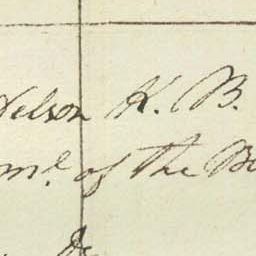 Nelson K. B.
md. of the B
Dr